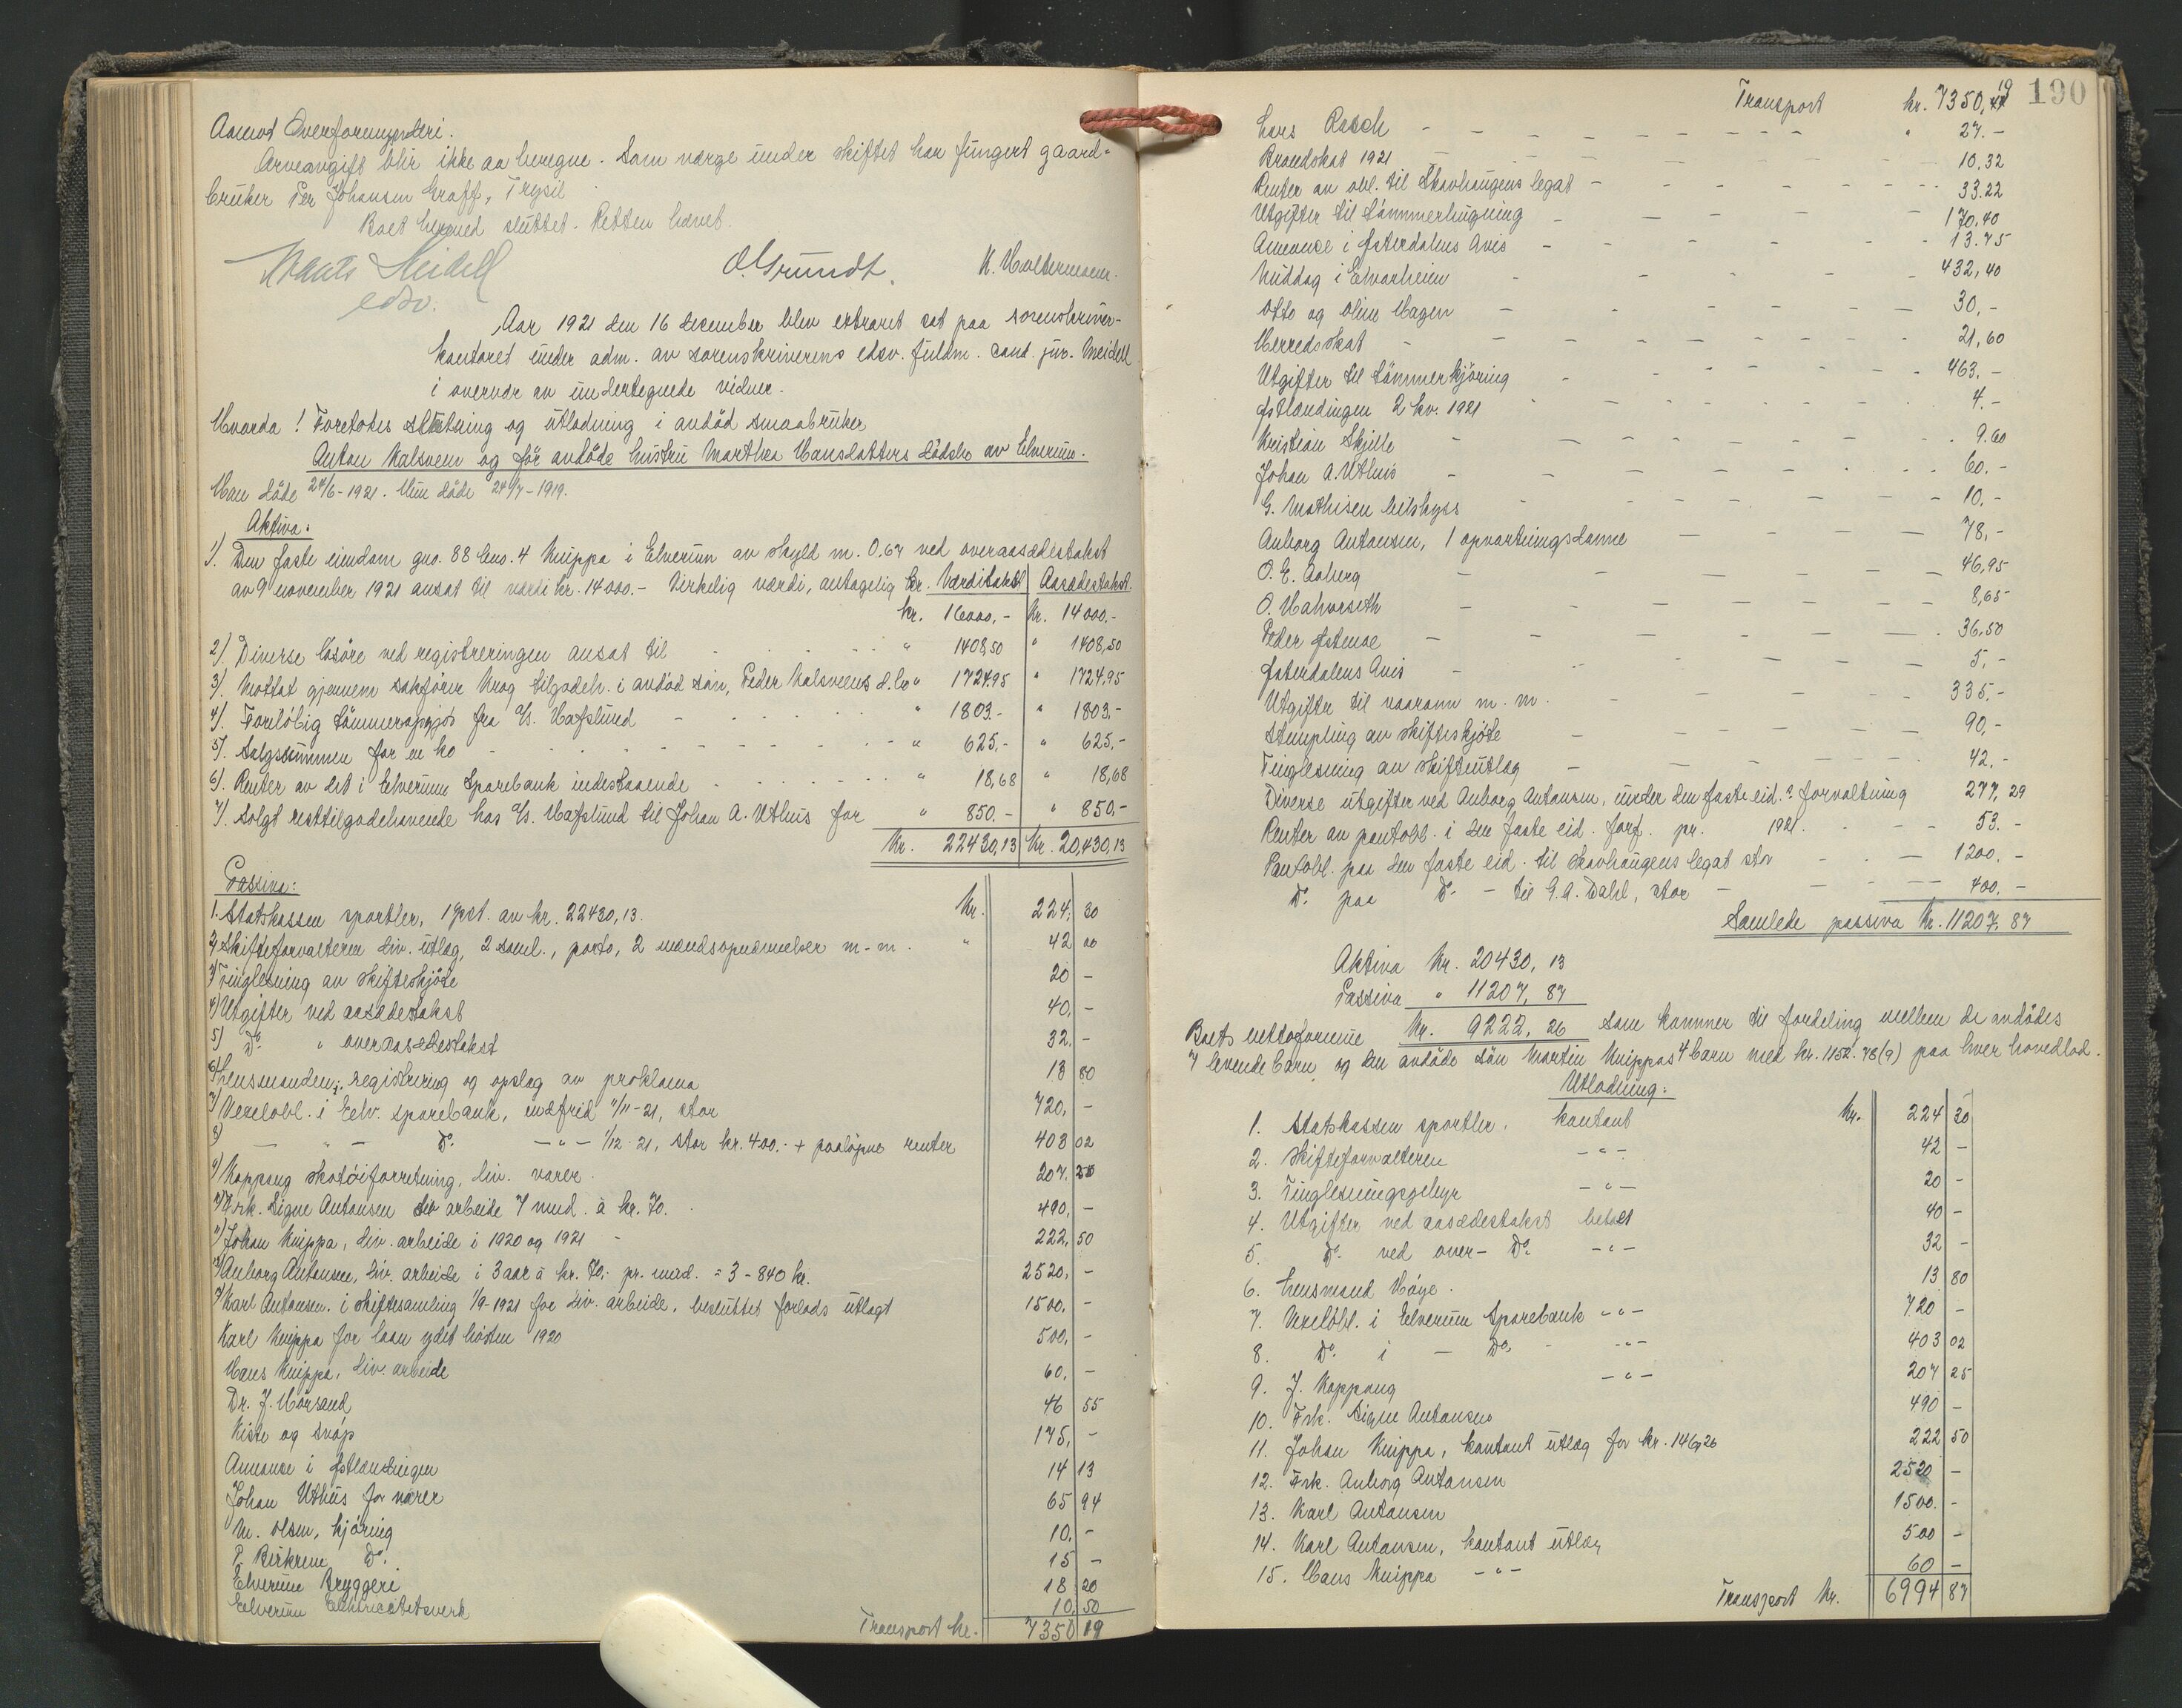 Aamot Overformynderi.
Arveavgift blir ikke aa beregne. Som værge under skiftet har fungert gaard-
bruker Per Johansen Graff, Trysil
Boet hermed sluttet. Retten hævet.
Meidell O. Grundt. K. Haltermann.
edsv.
Aar 1921 den 16 december blev extraret sat paa sorenskriver-
kontoret under adm. av sorenskriverens edsv. fuldm. cand. jur. Meidell
i overvær av undertegnede vidner.
Hvorda! Foretokes slutning og utlodning i avdöd smaabruker
Anton Kalsveen og för avdöde hustru Marthea Hansdatters dödsbo av Elverum.
Man döde 24/6-1921. Hun döde 24/7-1919.
Aktiva:
1). Den faste eiendom gno. 88 bno. 4 Knippa i Elverum av skyld m. 0.67 ved overaasædestakst
av 9 november 1921 ansat til værdi kr. 14000.- Virkelig værdi, antagelig kr. Værditakst Aasædestakst.
kr. 16000,- kr. 14000.-
2). Diverse lösöre ved registreringen ansat til - " 1408,50 " 1408,50
3). Mottat gjennem sakförer Krog tilgodeh. i avdöd sön, Peder Kalsveens d.bo " 1724.95 " 1724.95
4). Forelöbig tömmeropgjör fra A/s. Hafslund - " 1803.- " 1803.-
5). Salgssummen for en ko - " 625,- " 625,-
6). Renter av det i Elverum Sparebank indestaaende - " 18,68 " 18,68
7). Solgt resttilgodehavende hos A/s. Hafslund til Johan A. Uthus for " 850.- " 850.-
Kr. 22430,13 Kr. 20,430,13
Passiva:
1. Statskassen sportler, 1 pct. av kr. 22430,13. Kr. 224, 30
2) Skifteforvalteren div. utlæg, 2 saml., porto, 2 mændsopnævnelser m. m. " 42 00
3) Tinglesning av skifteskjöte 20 -
4) Utgifter ved aasædestakst 40, -
5) Do. " overaasædestakst 32. -
6) Lensmanden, registrering og opslag av proklama 13 80
7) Vexelobl. i Eelv. sparebank, indfrid 11/11-21, stor 720, -
8) - " - Do. - " - 1/12-21, stor kr. 400.- + paalöpne renter 403 02
9) Koppang skotöiforretning, div. varer. 207. 25
10) Frk. Signe Antonsen div arbeide 7 mnd. à kr. 70. 490, -
11) Johan Knippa, div. arbeide i 1920 og 1921 - 222, 50
12) Anborg Antonsen, div. arbeide i 3 aar à kr. 70,- pr. mnd. = 3 - 840 kr. 2520, -
13) Karl Antonsen. i skiftesamling 1/9-1921 for div. arbeide, besluttet forlods utlagt 1500. -
Karl Knippa for laan ydet hösten 1920 500, -
Hans Knippa, div. arbeide 60, -
Dr. J. Mörsand 46 55
Kiste og svöp 175, -
Annonse i Østlendingen 14 13
Johan Uthus for varer 65 94
M. Olsen, kjöring 10. -
P. Birkrem Do. 15 -
Elverum Bryggeri 18 20
Eelverum Elektricitetsverk 10. 50
Transport kr. 7350 19
190
Transport kr. 7350,19
Lars Rasch - " 27.-
Brandskat 1921 - 10,32
Renter av obl. til Skavhaugens legat - 33.22
Utgifter til tömmerhugning - 170,40
Annonce i Østerdalens Avis - 13.75
Middag i Elvarheim - 432,40
Otto og Oline Hagen - 30,-
Herredsskat - 21,60
Utgifter til tömmerkjöring - 463.-
Østlendingen 2 kv. 1921 - 4.-
Kristian Skjille - 9.60
Johan A. Uthus - 60.-
G. Mathisen bilskyss - 10.-
Anborg Antonsen, 1 opvartningsdame - 78,-
O. E. Aaberg - 46,95
O. Halvorseth - 8,65
Peder Østense - 36,50
Østerdalens Avis - 5,-
Utgifter til vaaronn m. m. - 335.-
Stempling av skifteskjöte - 90,-
Tinglesning av skifteutlæg - 42.-
Diverse utgifter ved Anborg Antonsen, under den faste eid.s forvaltning 277, 29
Renter av pantobl. i den faste eid. forf. pr. 1921. - 53.-
Pantobl. paa den faste eid. til Skavhaugens legat stor - 1200.-
Do. paa Do. - til G. A. Dahl, stor - 400.-
Samlede passiva Kr. 11207. 87
Aktiva Kr. 20430, 13
Passiva " 11207, 87
Boets nettoformue Kr. 9222, 26 som kommer til fordeling mellem de avdödes
7 levende barn og den avdöde sön Martin Knippas 4 barn med kr. 1152.78(9) paa hver hovedlod.
Utlodning:
1. Statskassen sportler. kontant Kr. 224 30
2. Skifteforvalteren - " - 42 -
3. Tinglesningsgebyr - " - 20 -
4. Utgifter ved aasædestakst betalt 40 -
5. Do. ved over- Do. - " - 32 -
6. Lensmand Höye. 13 80
7. Vexelobl. i Elverum Sparebank - " - 720 -
8. Do. i - Do. - " - 403 02
9. J. Koppang - " - 207 25
10. Frk. Signe Antonsens 490 -
11. Johan Knippa, kontant utlæg for kr. 146,26 222 50
12. Frk. Anborg Antonsen 2520 -
13. Karl Antonsen 1500. -
14. Karl Antonsen, kontant utlæg 500 -
15. Hans Knippa - " - 60 -
Transport Kr. 6994 87